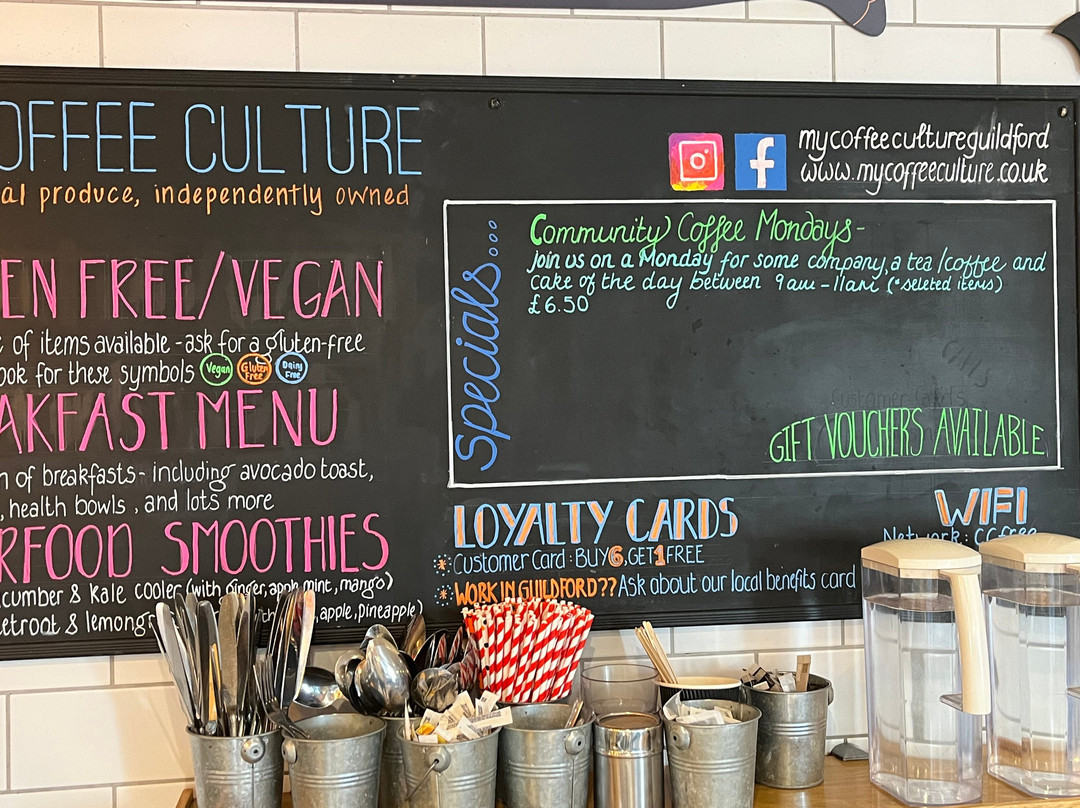 OFFEE CULTURE
al produce, independently owned
EN FREE/VEGAN
of items available - ask for a gluten-free
ook for these symbols Vegan Gluten Free Dairy Free
AKFAST MENU
n of breakfasts - including avocado toast,
, health bowls, and lots more
RFOOD SMOOTHIES
cumber & kale cooler (with ginger, apple, mint, mango)
etroot & lemong
, apple, pineapple)
mycoffeecultureguildford
www.mycoffeeculture.co.uk
Specials...
Community Coffee Mondays -
Join us on a Monday for some company, a tea/coffee and
cake of the day between 9am - 11am (*seleted items)
£6.50
Customer Cards
GIFT VOUCHERS AVAILABLE
LOYALTY CARDS
Customer Card: BUY 6, GET 1 FREE
WORK IN GUILDFORD?? Ask about our local benefits card
WIFI
Network: CCfree